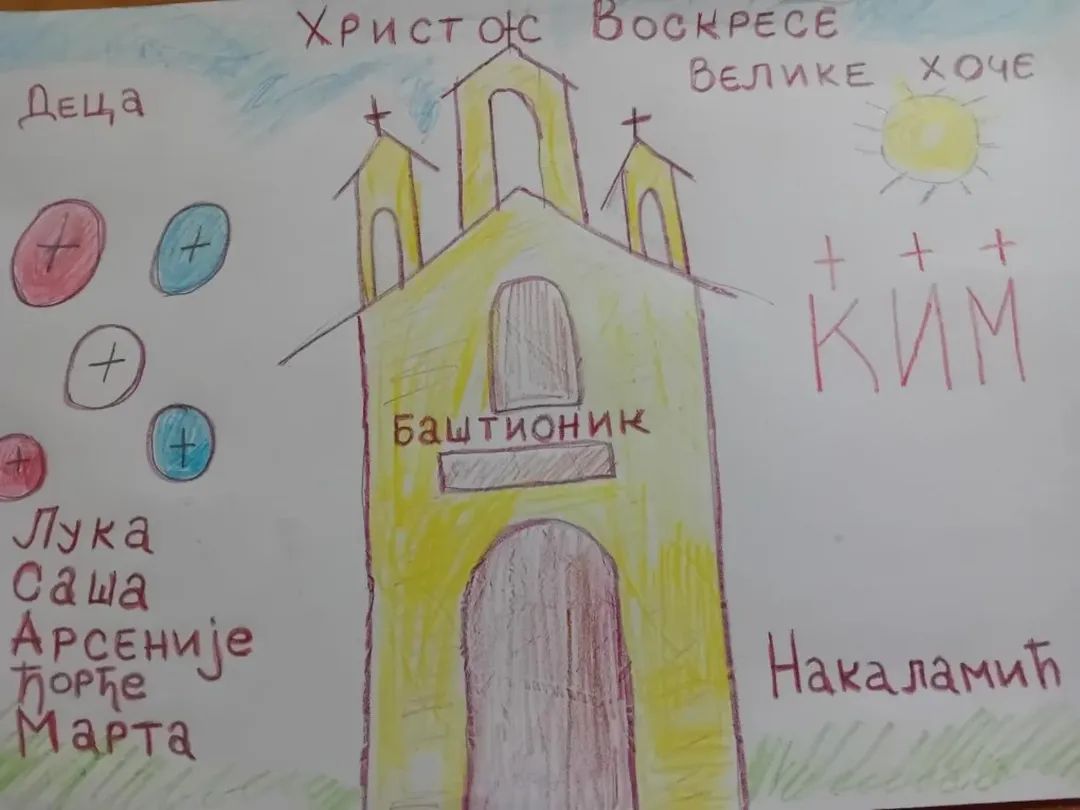 Христос Воскресе
Велике Хоче
Деца
КИМ
Баштионик
Лука
Саша
Арсеније
Ђорђе
Марта
Накаламић